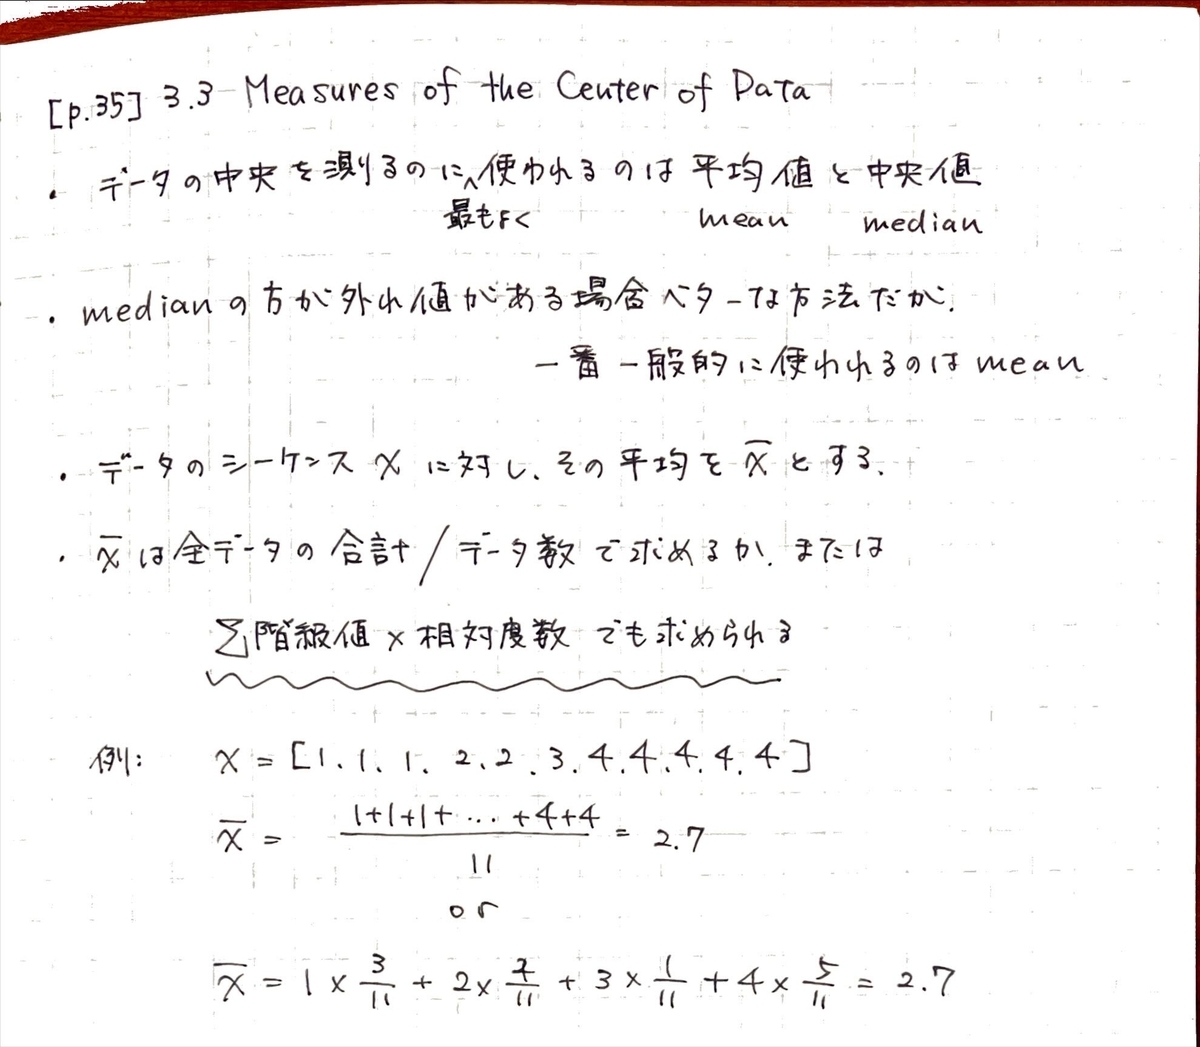 [p.35] 3.3 Measures of the Center of Data
・データの中央を測るのに^使われるのは平均値と中央値
最もよく mean median
・medianの方が外れ値がある場合ベターな方法だが、
一番一般的に使われるのはmean
・データのシーケンス x に対し、その平均を x̄ とする。
・x̄ は全データの合計/データ数で求めるか、または
∑階級値×相対度数 でも求められる
例: x = [1、1、1、2、2、3、4、4、4、4、4]
x̄ = (1+1+1+…+4+4)/11 = 2.7
or
x̄ = 1 × 3/11 + 2 × 2/11 + 3 × 1/11 + 4 × 5/11 = 2.7